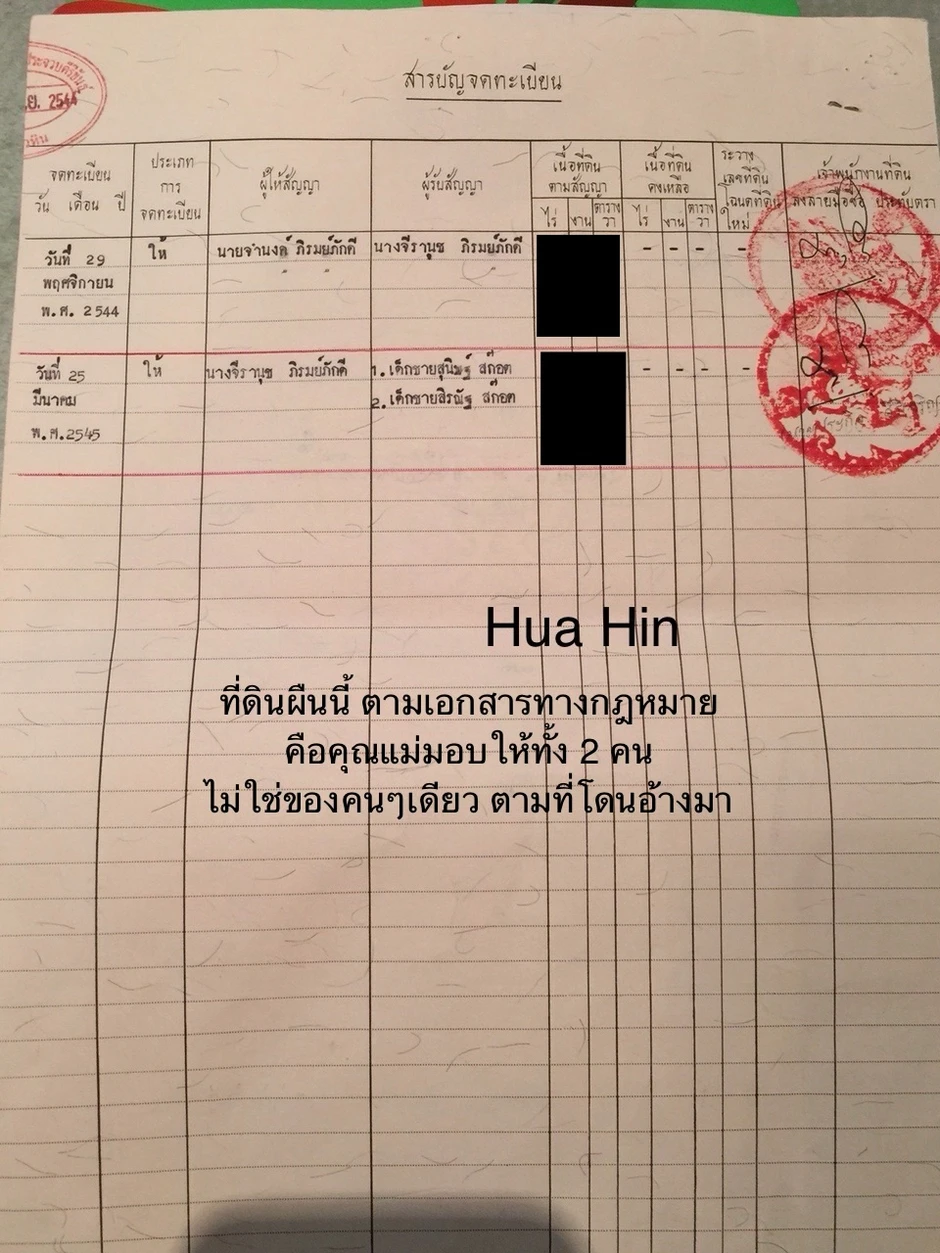 สารบัญจดทะเบียน
ประจวบคีรีขันธ์
ย. 2544
จดทะเบียน
วัน เดือน ปี
ประเภท
การ
จดทะเบียน
ผู้ให้สัญญา
ผู้รับสัญญา
เนื้อที่ดิน
ตามสัญญา
ไร่ งาน ตาราง
วา
เนื้อที่ดิน
คงเหลือ
ไร่ งาน ตาราง
วา
ระวาง
เลขที่ดิน
โฉนดที่ดิน
ใหม่
เจ้าพนักงานที่ดิน
ลงลายมือชื่อ ประทับตรา
วันที่ 29
พฤศจิกายน
พ.ศ. 2544
ให้
นายจำนงค์ ภิรมย์ภักดี
นางจีรานุช ภิรมย์ภักดี
- - - -
วันที่ 25
มีนาคม
พ.ศ.2545
ให้
นางจีรานุช ภิรมย์ภักดี
1. เด็กชายสุนิษฐ์ สก๊อต
2. เด็กชายสิรณัฐ สก๊อต
- - - -
Hua Hin
ที่ดินผืนนี้ ตามเอกสารทางกฎหมาย
คือคุณแม่มอบให้ทั้ง 2 คน
ไม่ใช่ของคนๆเดียว ตามที่โดนอ้างมา